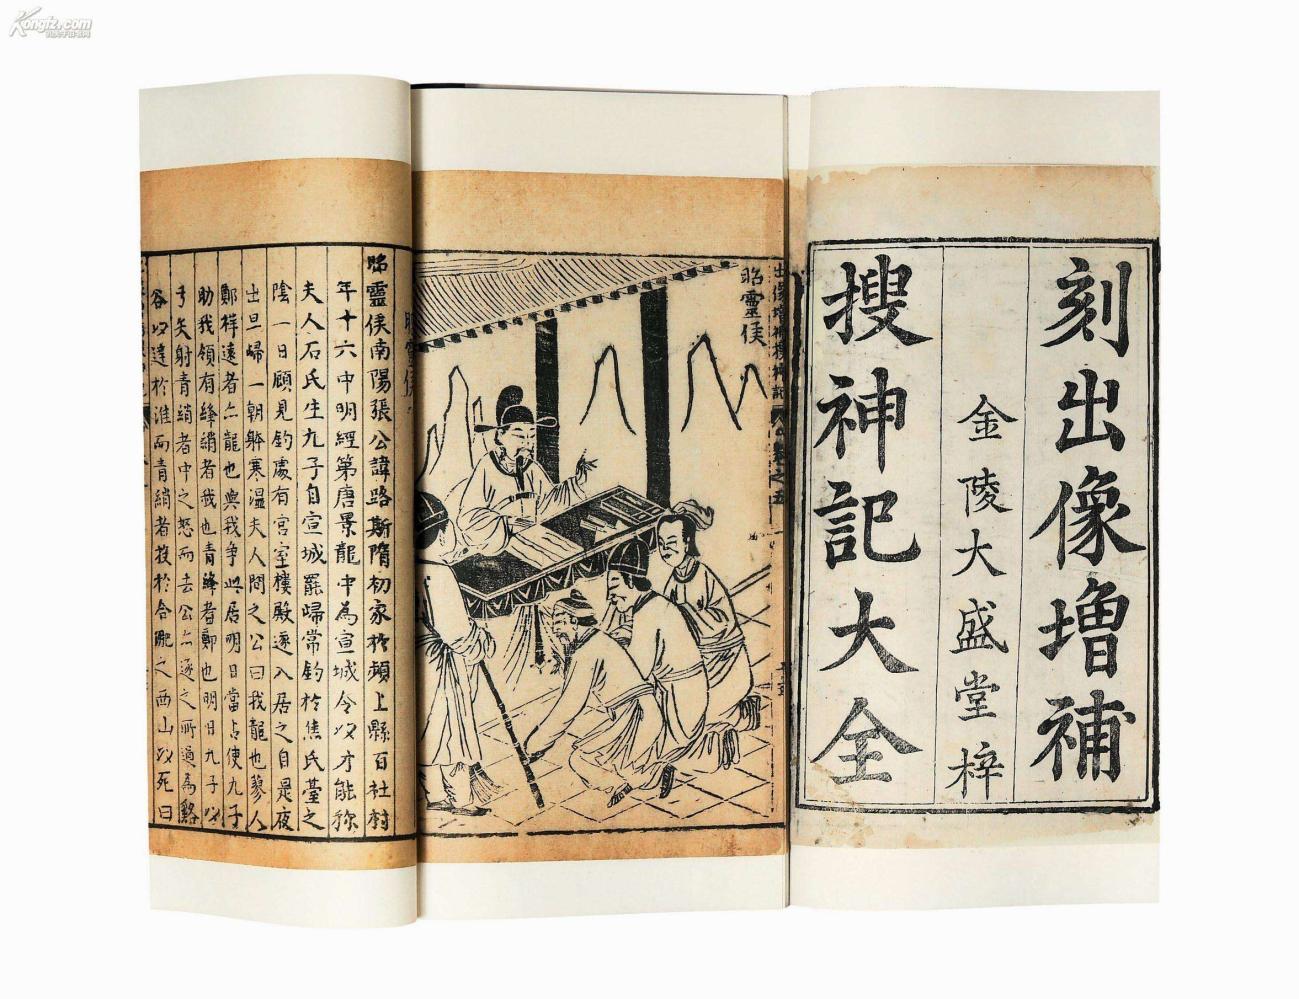 刻出像增補
金陵大盛堂梓
搜神記大全
出像增補搜神記
昭靈侯
昭靈侯
昭靈侯南陽張公諱路斯隋初家於潁上縣百社村
年十六中明經第唐景龍中為宣城令以才能称
夫人石氏生九子自宣城罷歸常釣於焦氏臺之
陰一日顧見釣處有宮室樓殿遂入居之自是夜
出旦歸一朝躰寒溫夫人問之公曰我龍也蓼人
鄭祥遠者亦龍也與我爭此居明日當占使九子
助我領有絳綃者我也青綃者鄭也明日九子以
弓矢射青綃者中之怒而去公亦逐之所過為谿
谷以達於淮而青綃者投於合肥之西山以死曰
Kongfz.com